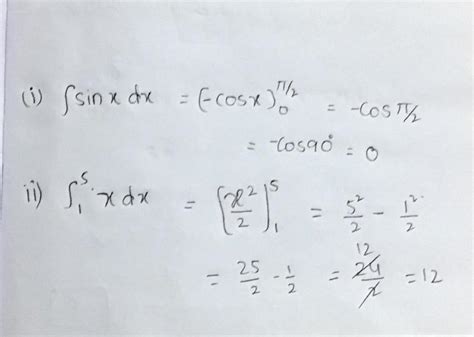 (i) ∫sinx dx = (-cosx)₀^π/2 = -cos π/2
= -cos90° = 0
ii) ∫₁^5 x dx = (x²/2)₁^5 = 5²/2 - 1²/2
= 25/2 - 1/2 = 24/2 12 = 12